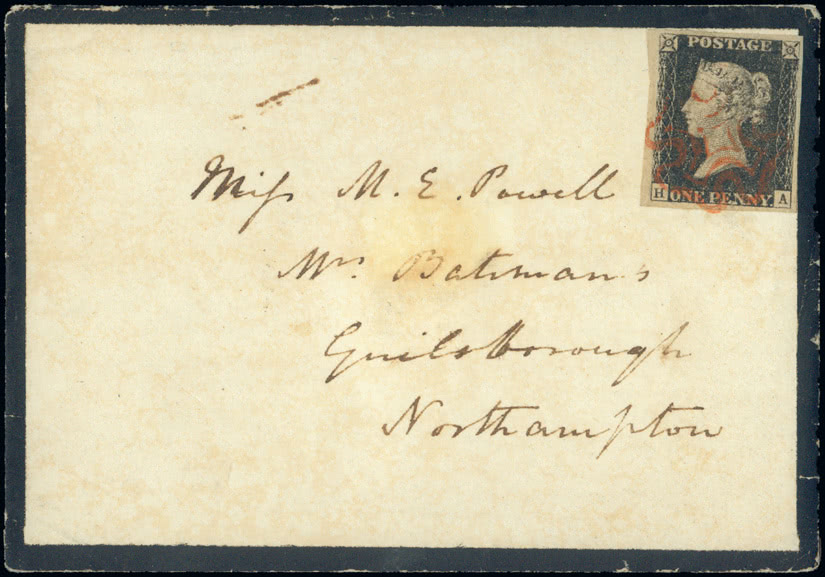 POSTAGE
H ONE PENNY A
Miſs M. E. Powell
Mrs Batemans
Guilsborough
Northampton